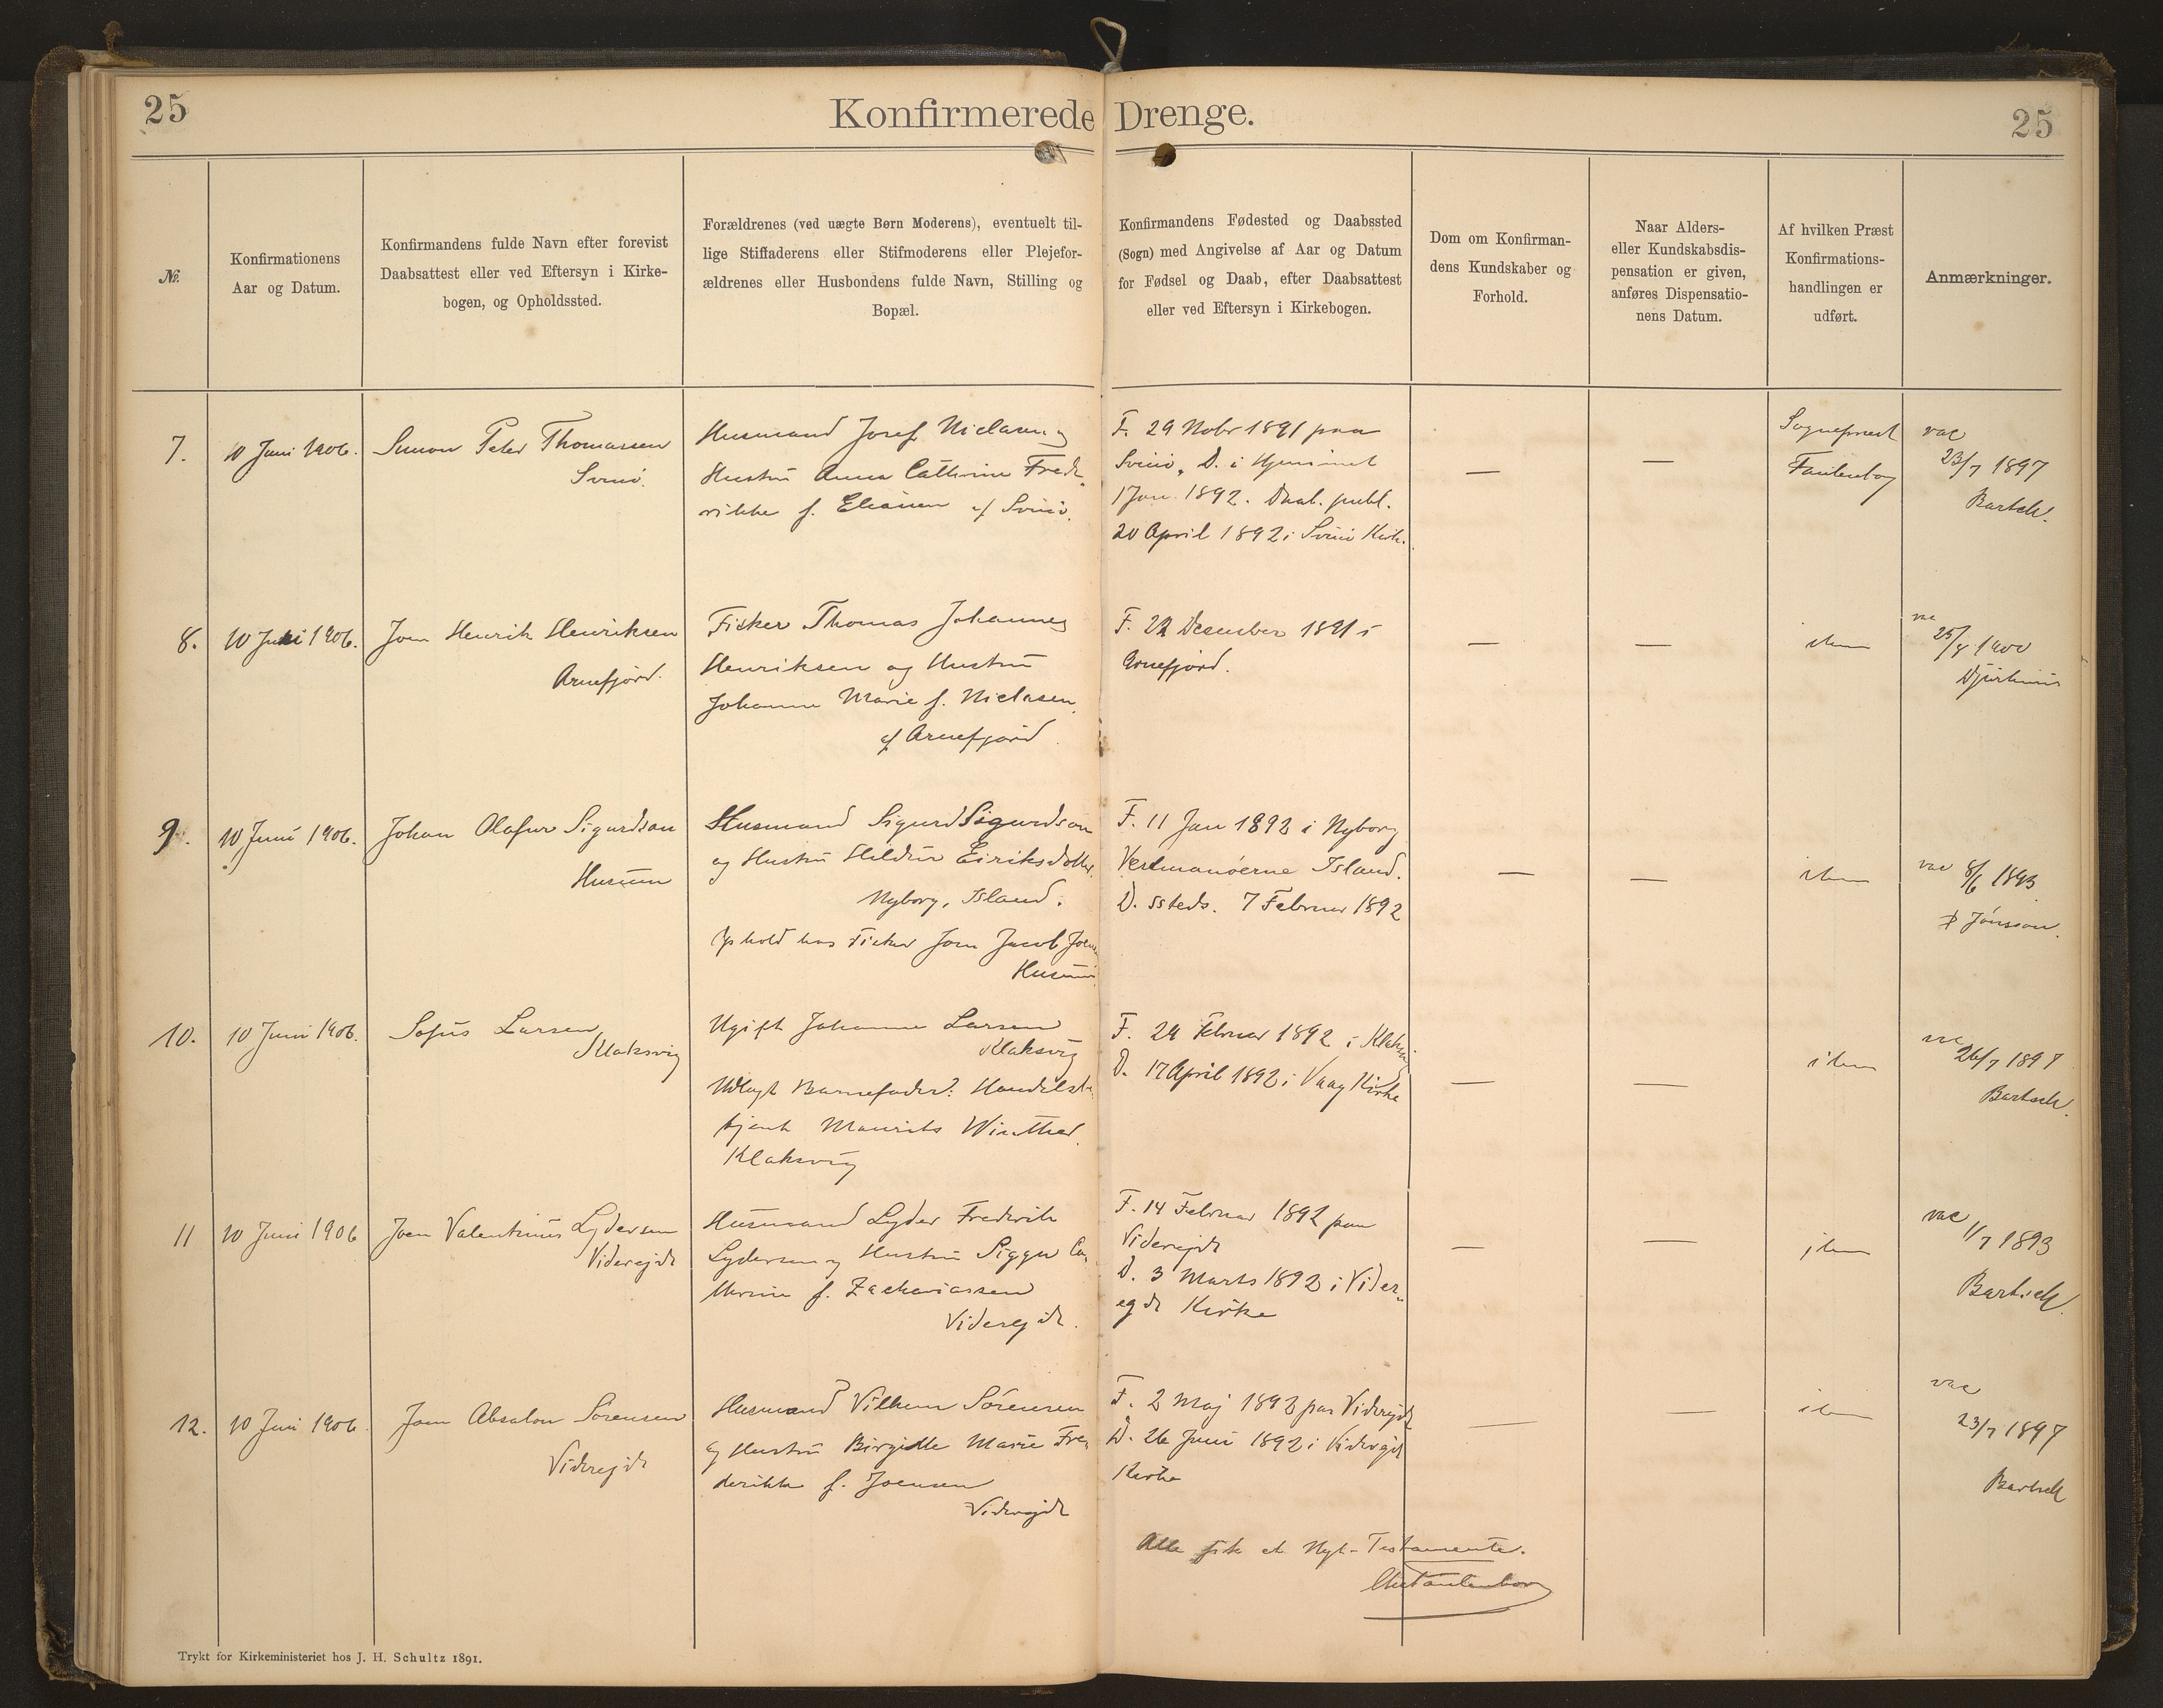 25
Konfirmerede Drenge.
25
№.
Konfirmationens
Aar og Datum.
Konfirmandens fulde Navn efter forevist
Daabsattest eller ved Eftersyn i Kirke-
bogen, og Opholdssted.
Forældrenes (ved uægte Børn Moderens), eventuelt til-
lige Stiffaderens eller Stifmoderens eller Plejefor-
ældrenes eller Husbondens fulde Navn, Stilling og
Bopæl.
Konfirmandens Fødested og Daabssted
(Sogn) med Angivelse af Aar og Datum
for Fødsel og Daab, efter Daabsattest
eller ved Eftersyn i Kirkebogen.
Dom om Konfirman-
dens Kundskaber og
Forhold.
Naar Alders-
eller Kundskabsdis-
pensation er given,
anføres Dispensatio-
nens Datum.
Af hvilken Præst
Konfirmations-
handlingen er
udført.
Anmærkninger.
7.
10 Juni 1906.
Simon Peter Thomassen
Svinö.
Husmand Josef Niclasen og
Hustrü Anna Cathrine Fred-
rikke f. Eliasen af Svinö.
F. 29 Nobr 1891 paa
Svinö, D. i Hjemmet
1 Jan. 1892. Daab. publ.
20 April 1892 i Svinö Kirke.
—
—
Sognepræst
Tantenborg
vac
23/7 1897
Bartsch.
8.
10 Juni 1906.
Joen Henrik Henriksen
Arnefjord.
Fisker Thomas Johannes
Henriksen og Hustrü
Johanne Marie f. Niclasen
af Arnefjord
F. 22 Desember 1891 i
Arnefjord.
—
—
idem
vac
25/8 1900
Djürhuus
9.
10 Juni 1906.
Johan Olafur Sigurdson
Husum
Husmand Sigurd Sigurdson
og Hustrü Hildür Eiriksdotter
Nyborg, Island.
Ophold hos Fisker Joen Jacob Joensen
Husum
F. 11 Jan 1892 i Nyborg
Vestmanöerne Island.
D. ssteds. 7 Februar 1892
—
—
idem
vac 8/6 1893
Jónsson.
10.
10 Juni 1906.
Sofus Larsen
Klaksvig
Ugift Johanne Larsen
Klaksvig
Udlagt Barnefader: Handelsbe-
tjent Maurits Winther
Klaksvig
F. 29 Februar 1892 i Klaksvig
D. 17 April 1892 i Vaag Kirke
—
—
idem
vac
26/7 1897
Bartsch.
11
10 Juni 1906
Joen Valentinus Lydersen
Viderejde
Husmand Lyder Frederik
Lydersen og Hustrü Sigga Ca-
thrine f. Zachariassen
Viderejde.
F. 14 Februar 1892 paa
Viderejde
D. 3 Marts 1892 i Vider-
ejde Kirke
—
—
idem
vac
11/7 1893
Bartsch.
12.
10 Juni 1906.
Joen Absalon Sörensen
Viderejde
Husmand Vilhelm Sörensen
og Hustrü Birgitte Marie Fre-
derikke f. Joensen
Viderejde
F. 2 Maj 1892 paa Viderejde
D. 26 Juni 1892 i Viderejde
Kirke
—
—
idem
vac
23/7 1897
Bartsch
Alle fik et Nyt-Testamente.
Tantenborg
Trykt for Kirkeministeriet hos J. H. Schultz 1891.